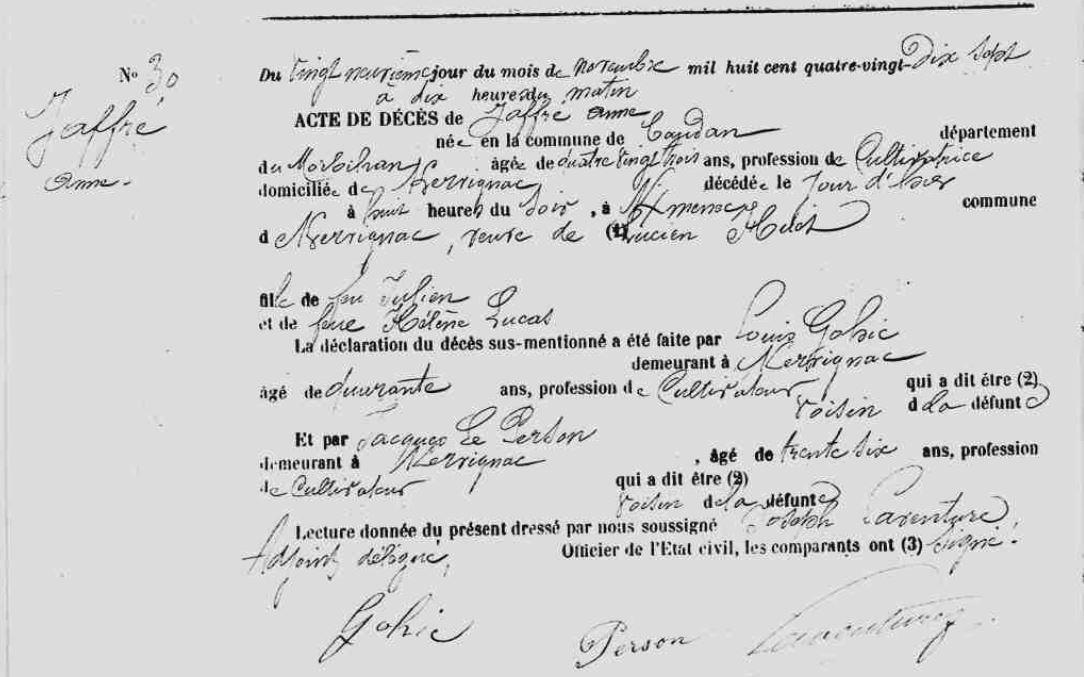 No 30
Jaffré
Anne.
Du Vingt neuvième jour du mois de Novembre mil huit cent quatre-vingt-Dix Sept
à dix heures du matin
ACTE DE DÉCÈS de Jaffré Anne
née en la commune de Caudan département
du Morbihan âgée de quatre vingt trois ans, profession de Cultivatrice
domiciliée de Merrignac décédée le Jour d'hier
à huit heures du soir, à commune
de Nerrignac, veuve de (1) Lucien
fille de feu Julien
et de feue Hélène Lucas
La déclaration du décès sus-mentionné a été faite par Louis Gohic
demeurant à Merrignac
âgé de quarante ans, profession de Cultivateur qui a dit être (2)
voisin de la défunte
Et par Jacques Le Person
demeurant à Merrignac, âgé de trente six ans, profession
de Cultivateur qui a dit être (2)
voisin de la défunte
Lecture donnée du présent dressé par nous soussigné Joseph Laventure
Adjoint délégué, Officier de l'Etat civil, les comparants ont (3) signé.
Gohic Person Laventure